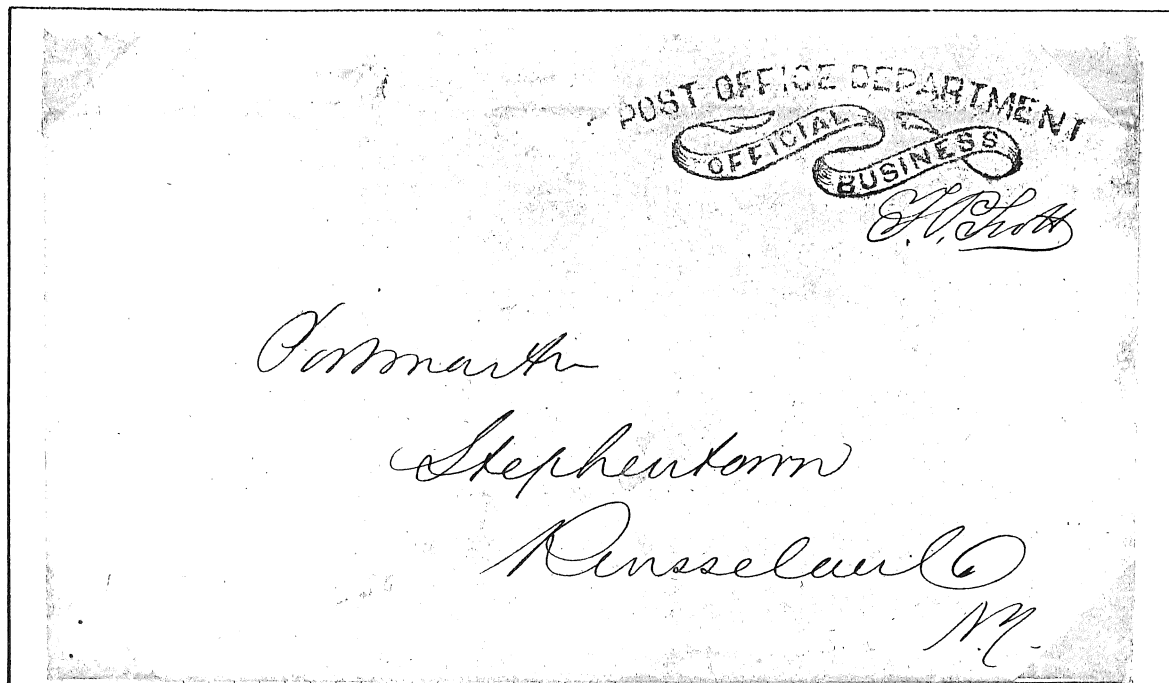 POST OFFICE DEPARTMENT
OFFICIAL BUSINESS
Postmaster
Stephentown
Rensselaer Co
N.Y.